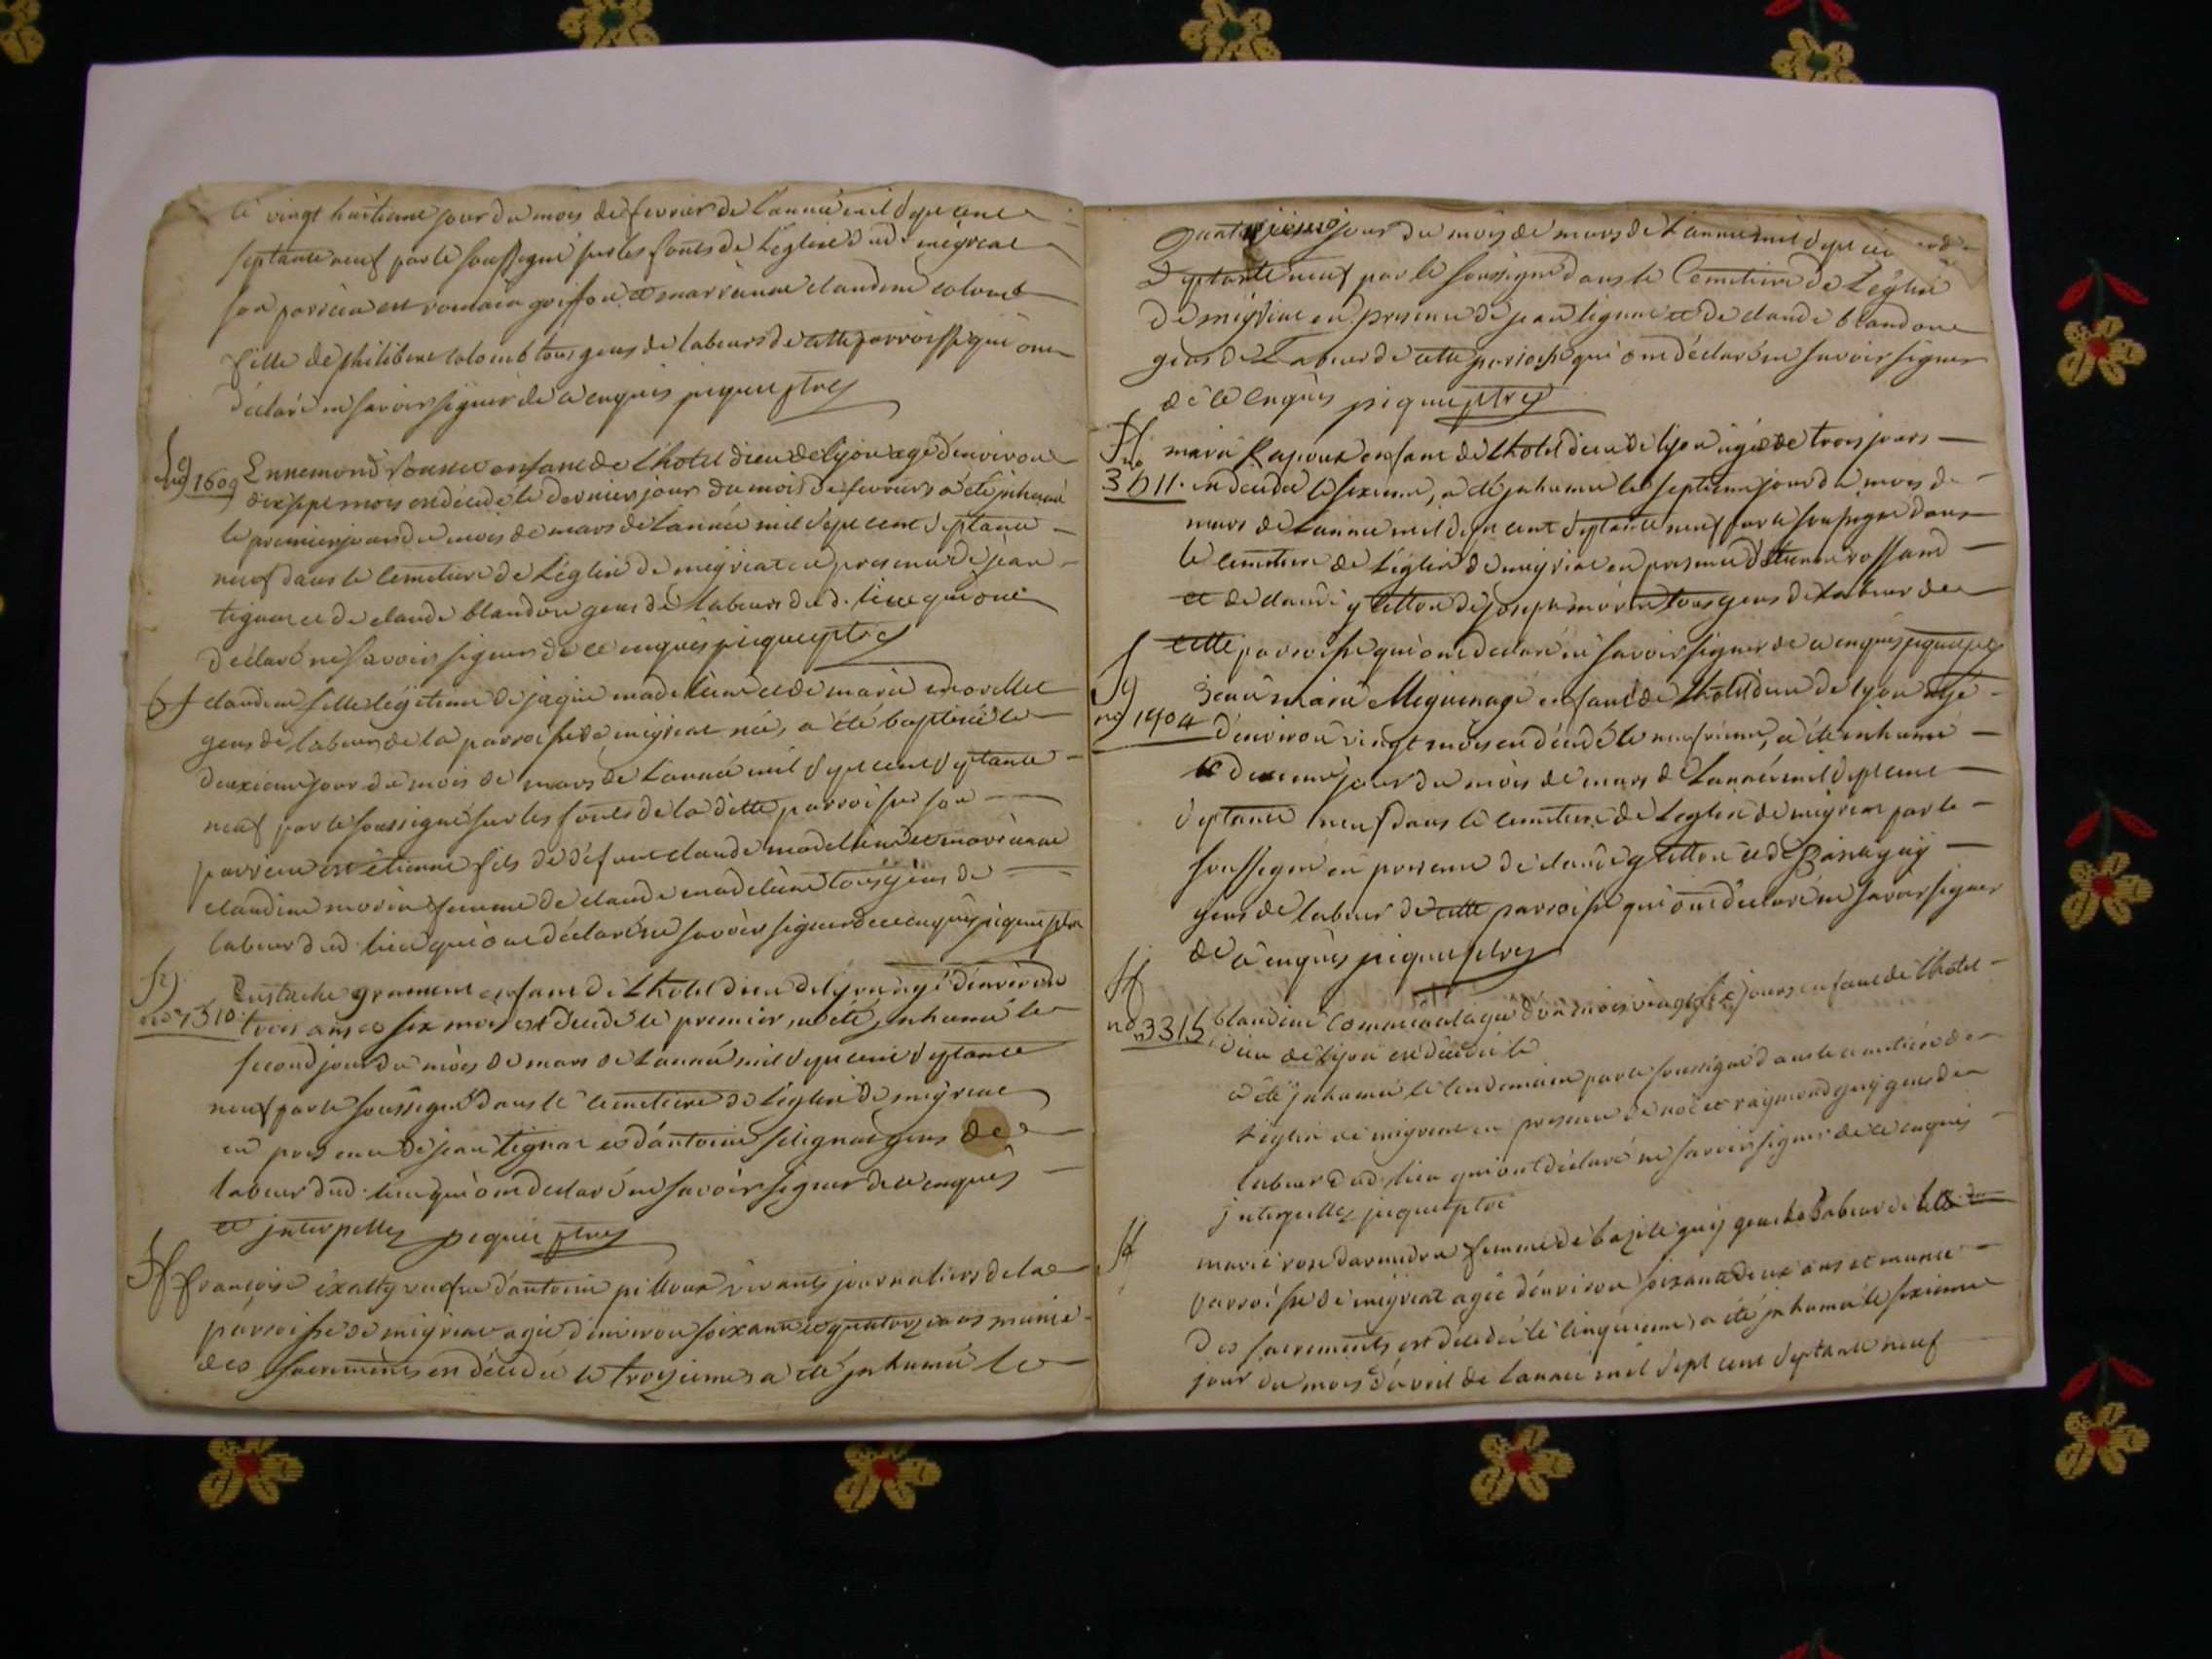 le vingt huitieme jour du mois de fevrier de l'année mil sept cent
septante neuf par le soussigné sur les fonts de l'église dud. meyriat
son parrein est romain goiffon et marrienne claudine colomb
fille de philibert colomb tous gens de labeurs de cette parroisse qui ont
déclaré ne savoir signer de ce enquis piquet ptre
Sg
n° 1609 Ennemond enfant de l'hotel dieu de lyon agé d'environ
dixsept mois est décédé le dernier jour du mois de fevrier a été inhumé
le premier jour du mois de mars de l'année mil sept cent septante
neuf dans le cemetiere de l'église de meyriat en presence de jean
tignat et de claude blandon gens de labeurs dud. lieu qui ont
déclaré ne savoir signer de ce enquis piquet ptre
Bf claudine fille légitime de jaque madeleine et de marie morellet
gens de labeurs de la parroisse de meyriat née, a été baptisée le
deuxieme jour du mois de mars de l'année mil sept cent septante
neuf par le soussigné sur les fonts de la ditte parroisse son
parrein est étienne fils de défunt claude madeleine et marrienne
claudine morin femme de claude madeleine tous gens de
labeur dud. lieu qui ont déclaré ne savoir signer de ce enquis piquet ptre
Sg
n° 1310 Eustache enfant de l'hotel dieu de lyon agé d'environ
trois ans et six mois est décédé le premier, a été inhumé le
second jour du mois de mars de l'année mil sept cent septante
neuf par le soussigné dans le cemetiere de l'église de meyriat
en presence de jean tignat et d'antoine selignat gens de
labeur dud. lieu qui ont declaré ne savoir signer de ce enquis
et interpellez piquet ptre
Sf françoise veufve d'antoine pilloux vivants journaliers de la
parroisse de meyriat agée d'environ soixante et quatorze ans munie
des sacrements est décédée le troisieme, a été inhumée le
quatrieme jour du mois de mars de l'année mil sept cent
septante neuf par le soussigné dans le cemetiere de l'église
de meyriat en presence de jean tignat et de claude blandon
gens de labeur de cette parroisse qui ont déclaré ne savoir signer
de ce enquis piquet ptre
Sf
n° 3511 marie Rapoux enfant de l'hotel dieu de lyon agée de trois jours
est decedée le sixieme, a été inhumée le septieme jour du mois de
mars de l'année mil sept cent septante neuf par le soussigné dans
le cemetiere de l'église de meyriat en presence d'étienne rossand
et de claude gletton de joseph morin tous gens de labeur de
cette parroisse qui ont declaré ne savoir signer de ce enquis piquet ptre
Sg
n° 1904 jean marie enfant de l'hotel dieu de lyon agé
d'environ vingt mois est décédé le neufvieme, a été inhumé
le dixieme jour du mois de mars de l'année mil sept cent
septante neuf dans le cemetiere de l'église de meyriat par le
soussigné en presence de claude gletton et de guy
gens de labeur de cette parroisse qui ont déclaré ne savoir signer
de ce enquis piquet ptre
Sf
n° 3315 claudine agée d'un mois vingt six jours enfant de l'hotel
dieu de lyon est décédée le
a été inhumée le lendemain par le soussigné dans le cemetiere de
l'église de meyriat en presence de noë et raymond guy gens de
labeur dud. lieu qui ont déclaré ne savoir signer de ce enquis
interpellez piquet ptre
Sf marie rose femme de bazile guy gens de labeur de la
parroisse de meyriat agée d'environ soixante deux ans et munie
des sacrements est décédée le cinquieme, a été inhumée le sixieme
jour du mois d'avril de l'année mil sept cent septante neuf